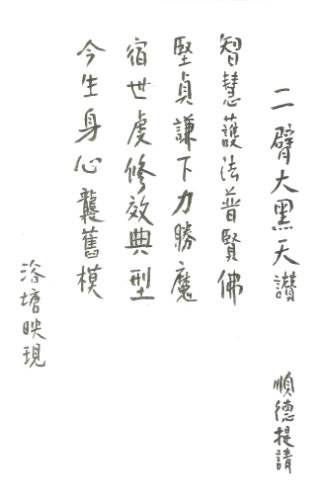 二臂大黑天讚
順德提請
智慧護法普賢佛
堅貞謙下力勝魔
宿世虔修效典型
今生身心襲舊模
浴塘映現